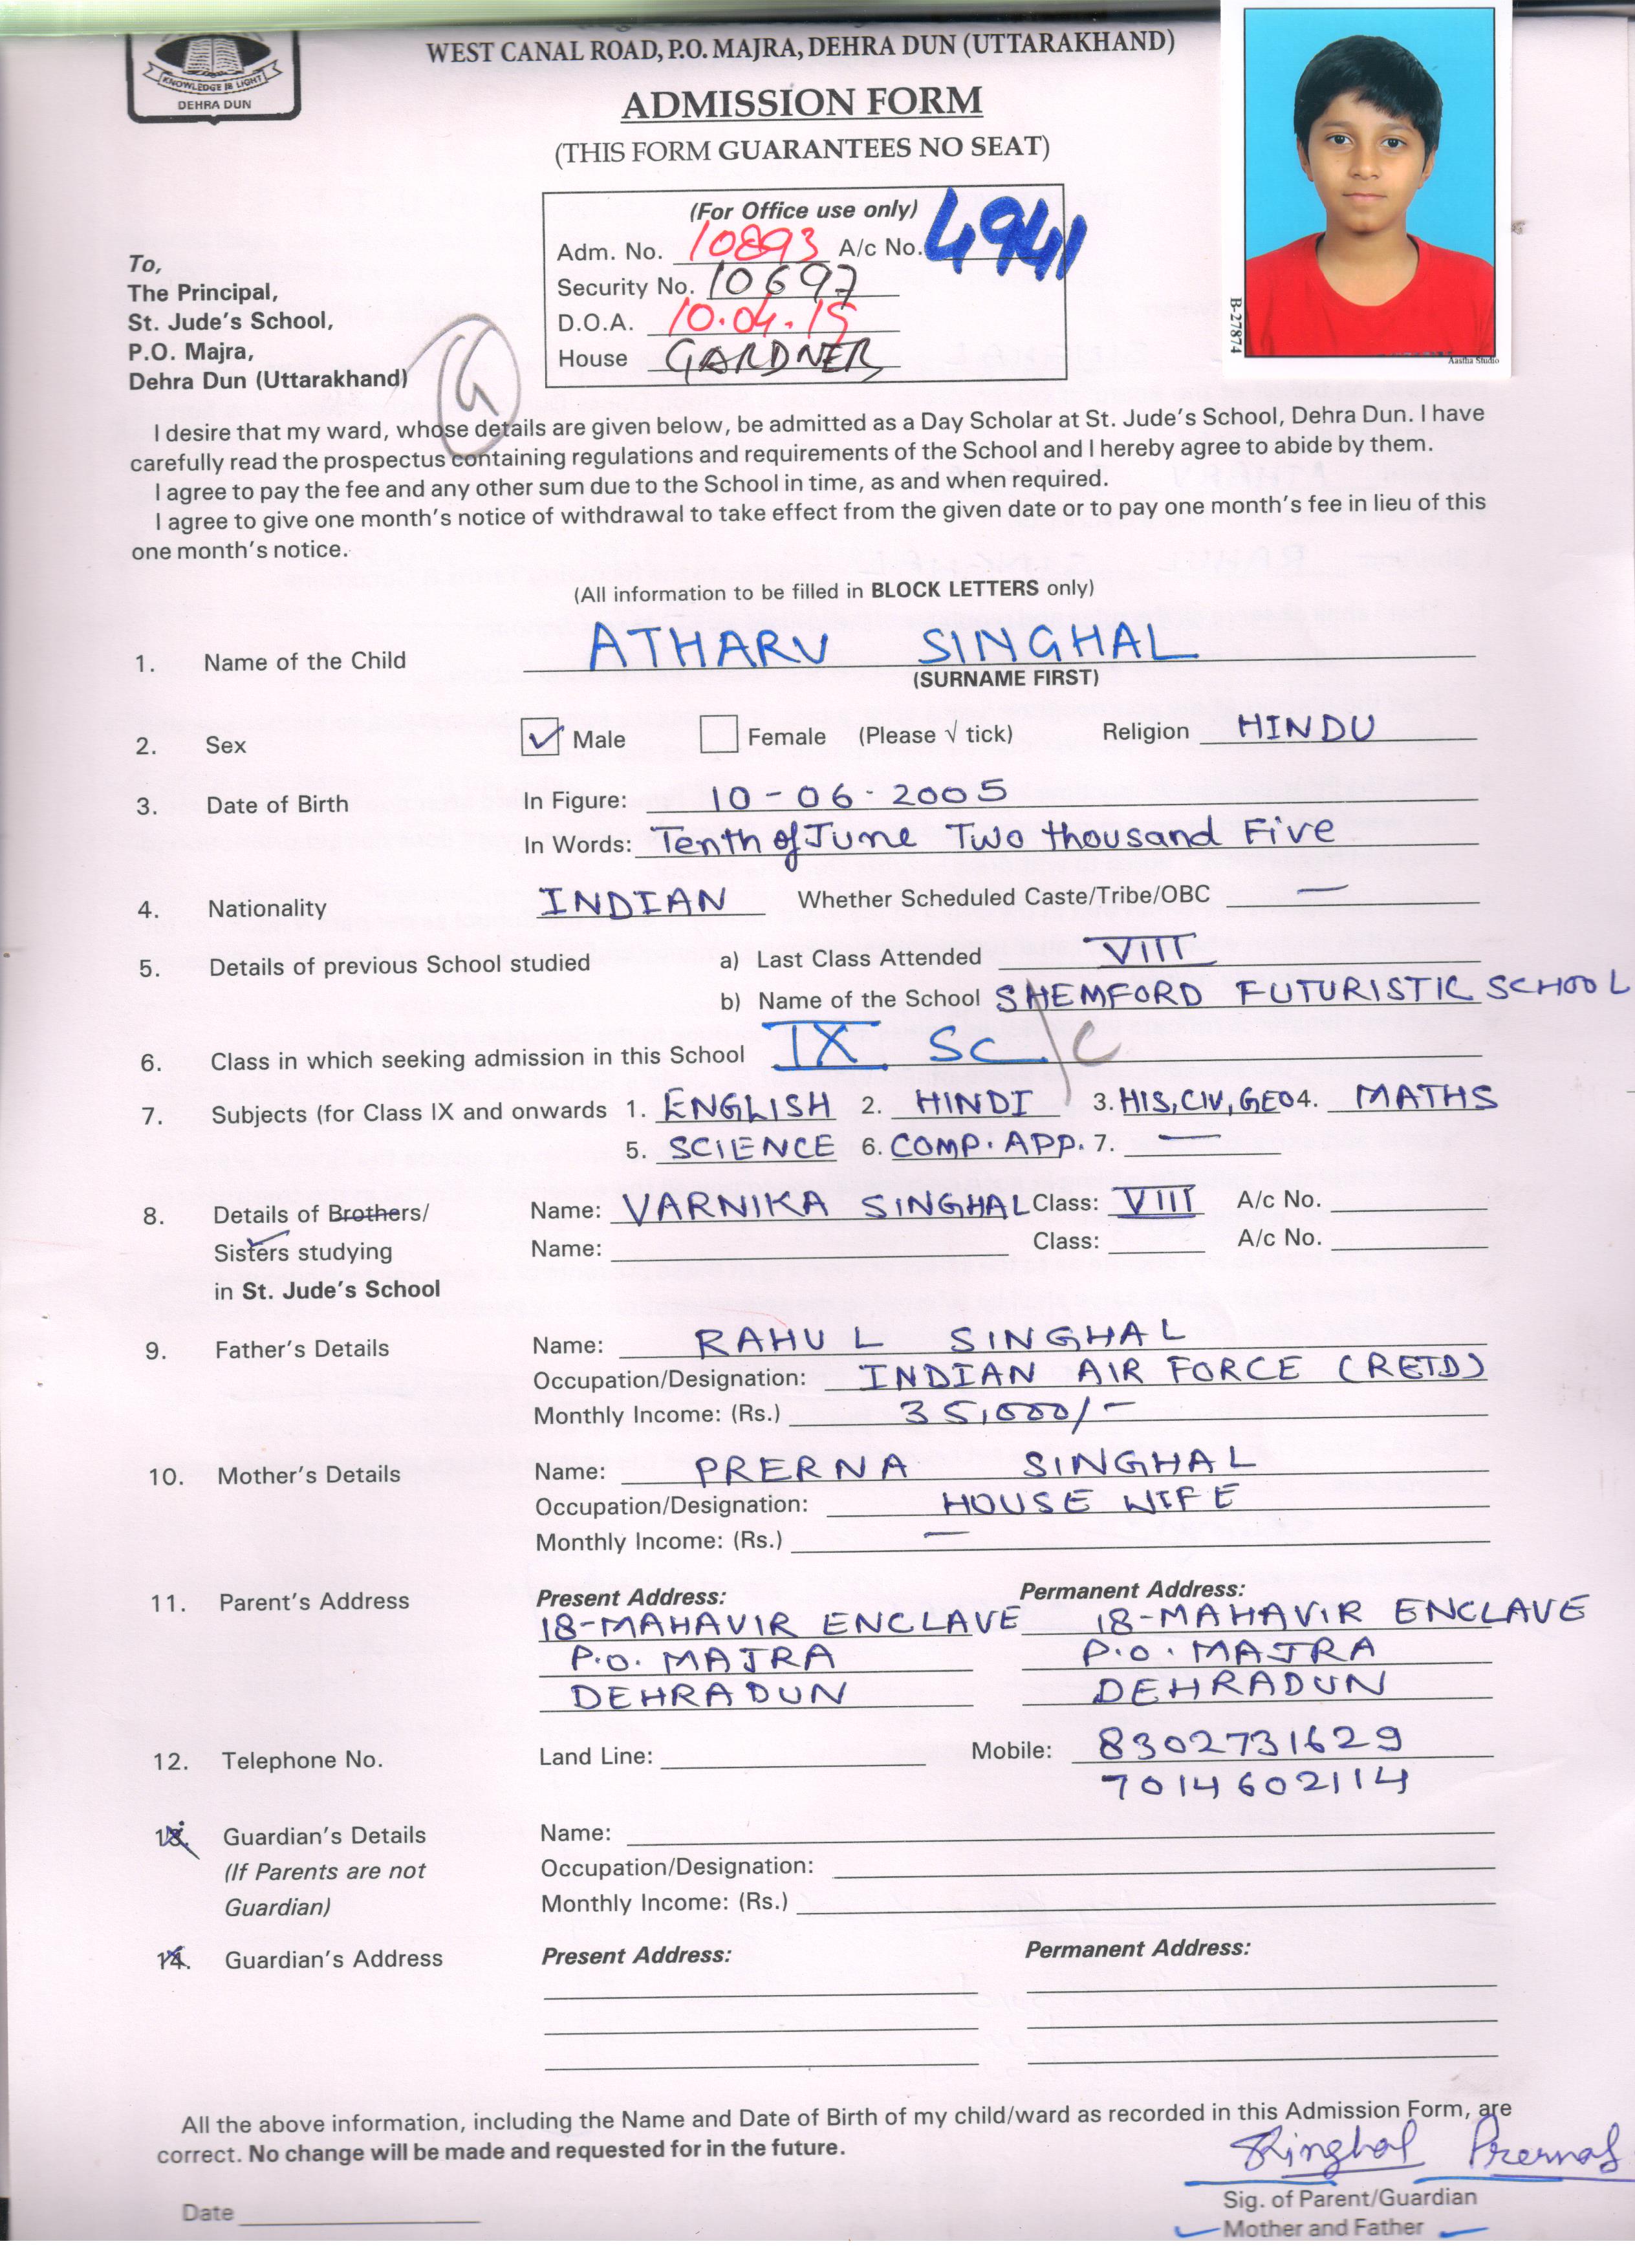 KNOWLEDGE IS LIGHT
DEHRA DUN
WEST CANAL ROAD, P.O. MAJRA, DEHRA DUN (UTTARAKHAND)
ADMISSION FORM
(THIS FORM GUARANTEES NO SEAT)
(For Office use only)
Adm. No. 10893 A/c No. 4941
Security No. 10697
D.O.A. 10.04.19
House GARDNER
B-27874
Aastha Studio
To,
The Principal,
St. Jude's School,
P.O. Majra,
Dehra Dun (Uttarakhand)
G
I desire that my ward, whose details are given below, be admitted as a Day Scholar at St. Jude's School, Dehra Dun. I have
carefully read the prospectus containing regulations and requirements of the School and I hereby agree to abide by them.
I agree to pay the fee and any other sum due to the School in time, as and when required.
I agree to give one month's notice of withdrawal to take effect from the given date or to pay one month's fee in lieu of this
one month's notice.
(All information to be filled in BLOCK LETTERS only)
1. Name of the Child ATHARV SINGHAL
(SURNAME FIRST)
2. Sex Male Female (Please √ tick) Religion HINDU
3. Date of Birth In Figure: 10-06-2005
In Words: Tenth of June Two thousand Five
4. Nationality INDIAN Whether Scheduled Caste/Tribe/OBC —
5. Details of previous School studied a) Last Class Attended VIII
b) Name of the School SHEMFORD FUTURISTIC SCHOOL
6. Class in which seeking admission in this School IX SC. C
7. Subjects (for Class IX and onwards 1. ENGLISH 2. HINDI 3. HIS, CIV, GEO 4. MATHS
5. SCIENCE 6. COMP. APP. 7. —
8. Details of Brothers/ Name: VARNIKA SINGHAL Class: VIII A/c No.
Sisters studying Name: Class: A/c No.
in St. Jude's School
9. Father's Details Name: RAHUL SINGHAL
Occupation/Designation: INDIAN AIR FORCE (RETD)
Monthly Income: (Rs.) 35,000/-
10. Mother's Details Name: PRERNA SINGHAL
Occupation/Designation: HOUSE WIFE
Monthly Income: (Rs.) —
11. Parent's Address Present Address: Permanent Address:
18-MAHAVIR ENCLAVE 18-MAHAVIR ENCLAVE
P.O. MAJRA P.O. MAJRA
DEHRADUN DEHRADUN
12. Telephone No. Land Line: Mobile: 8302731629
7014602114
13. Guardian's Details Name:
(If Parents are not Occupation/Designation:
Guardian) Monthly Income: (Rs.)
14. Guardian's Address Present Address: Permanent Address:
All the above information, including the Name and Date of Birth of my child/ward as recorded in this Admission Form, are
correct. No change will be made and requested for in the future.
RSinghal PrernaS
Date Sig. of Parent/Guardian
Mother and Father